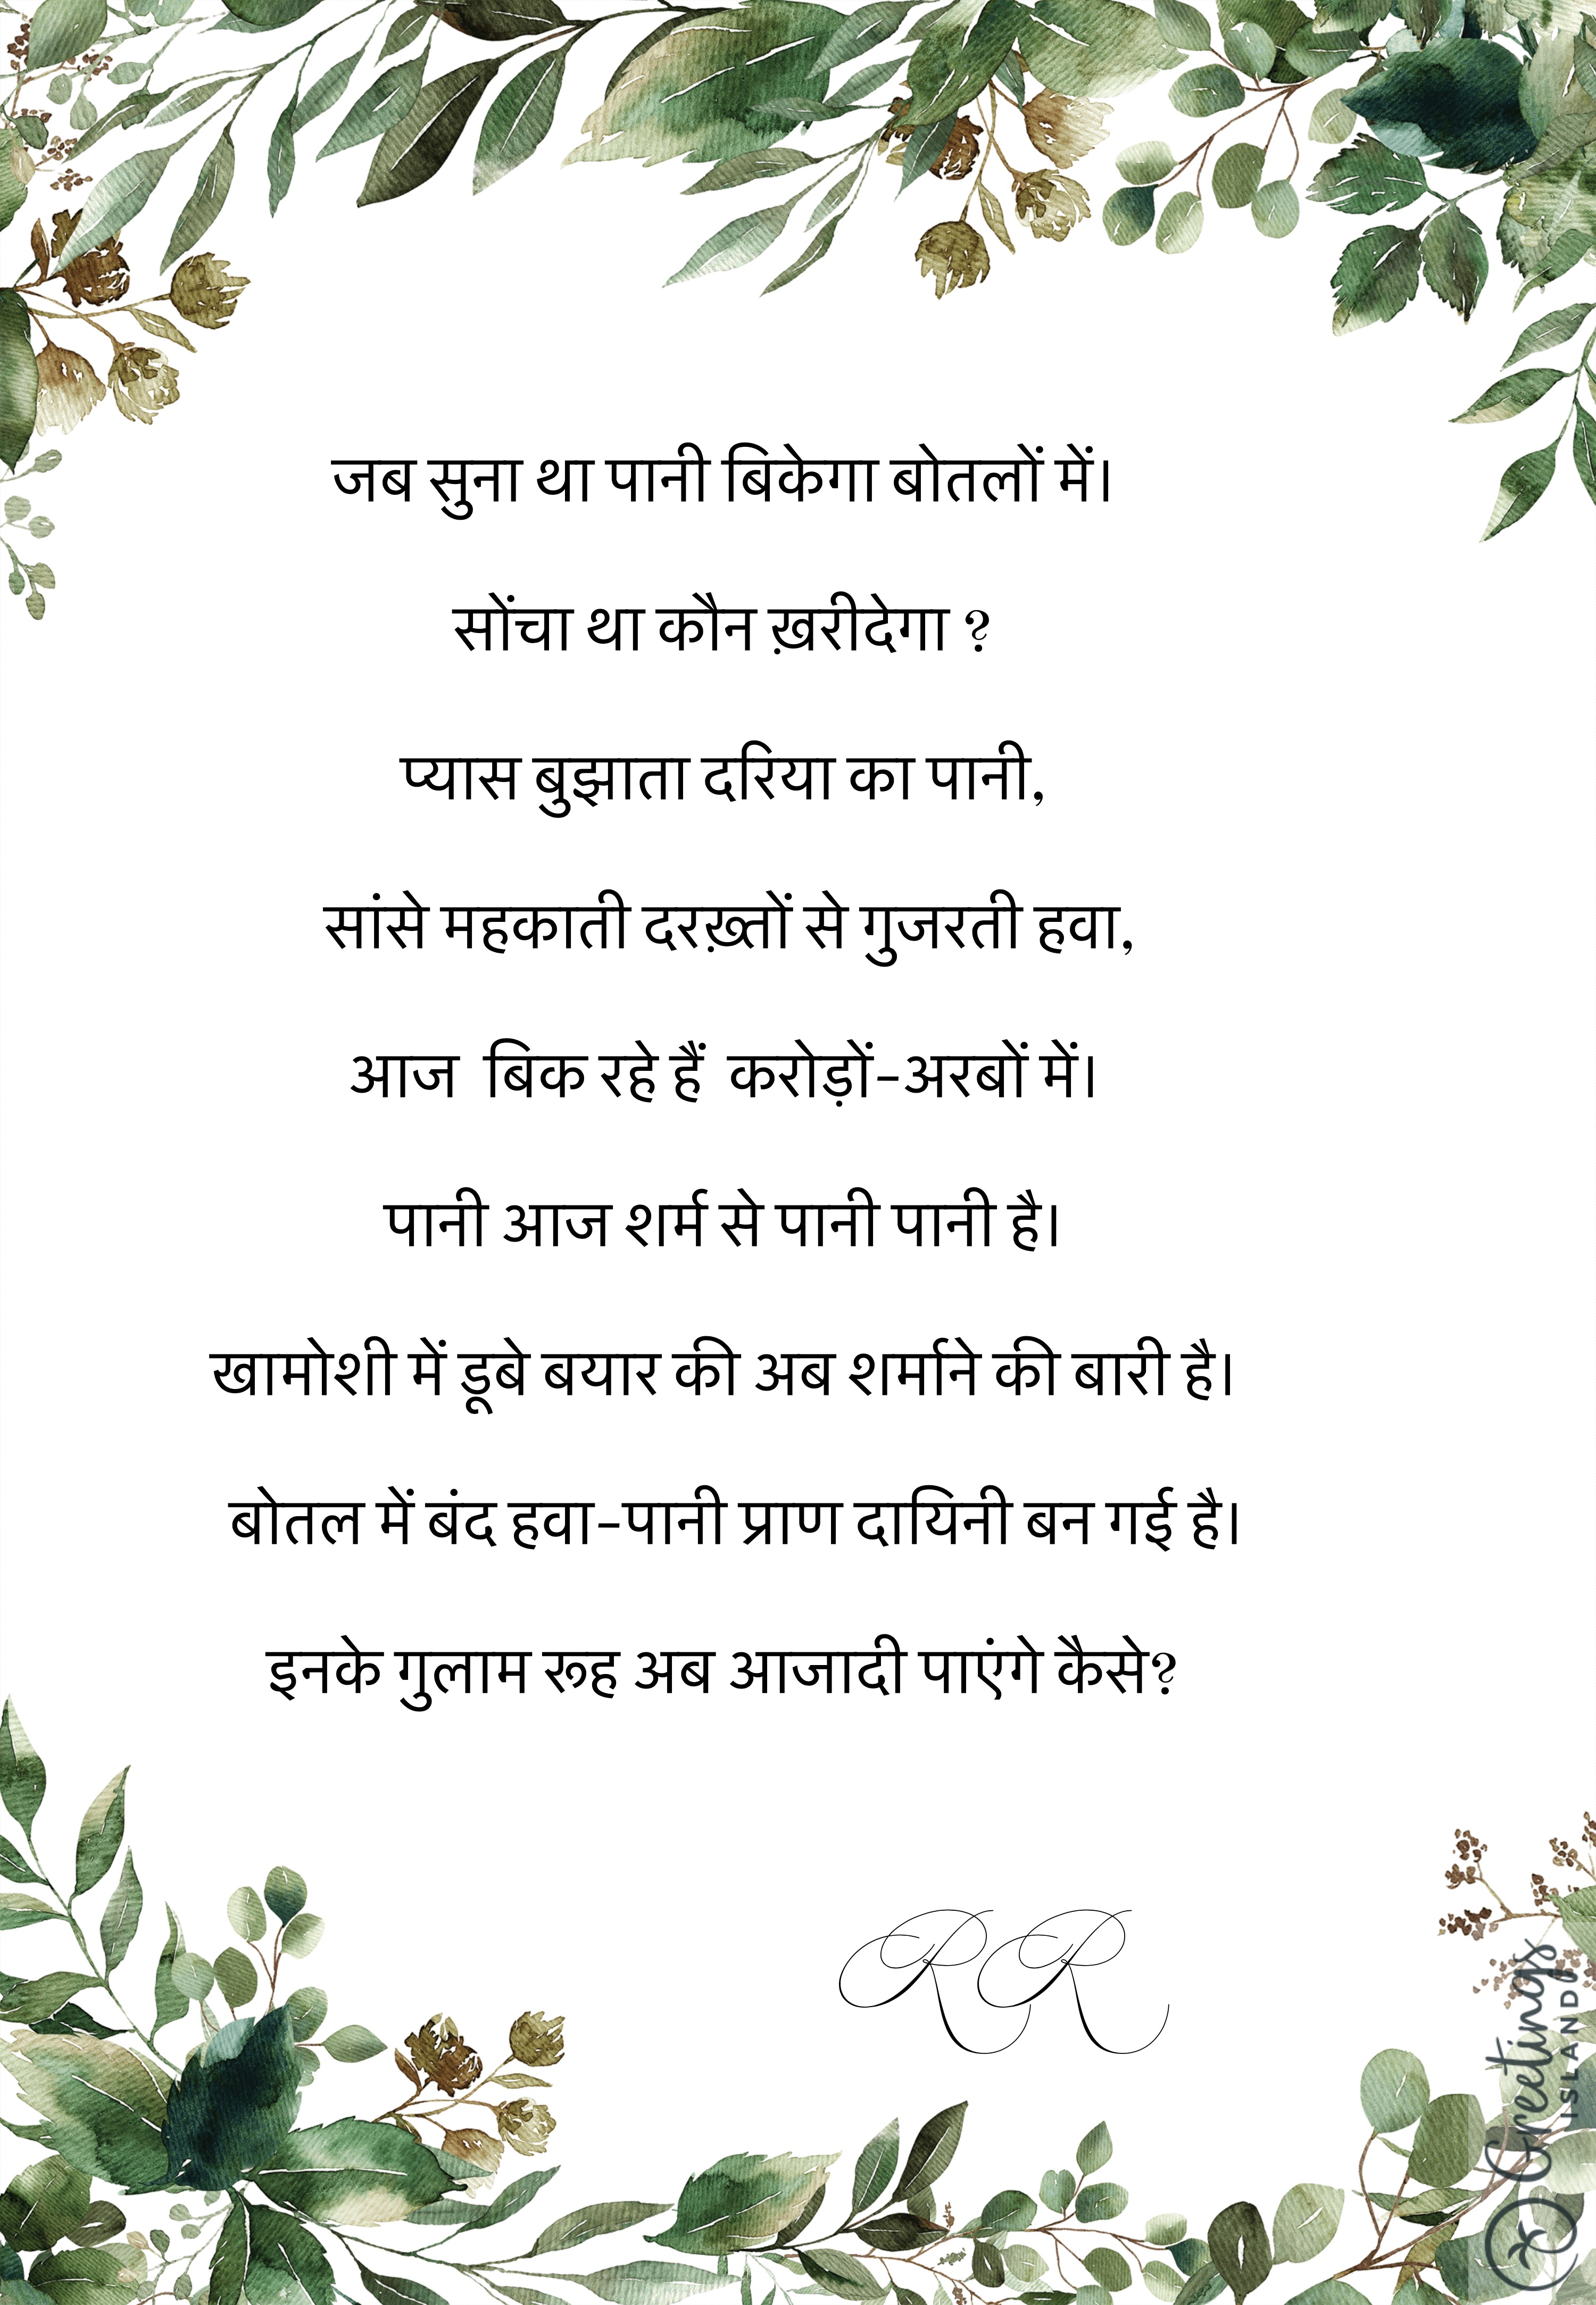 जब सुना था पानी बिकेगा बोतलों में।
सोंचा था कौन ख़रीदेगा ?
प्यास बुझाता दरिया का पानी,
सांसे महकाती दरख़्तों से गुजरती हवा,
आज बिक रहे हैं करोड़ों-अरबों में।
पानी आज शर्म से पानी पानी है।
खामोशी में डूबे बयार की अब शर्माने की बारी है।
बोतल में बंद हवा-पानी प्राण दायिनी बन गई है।
इनके गुलाम रूह अब आजादी पाएंगे कैसे?
RR
Greetings
ISLAND